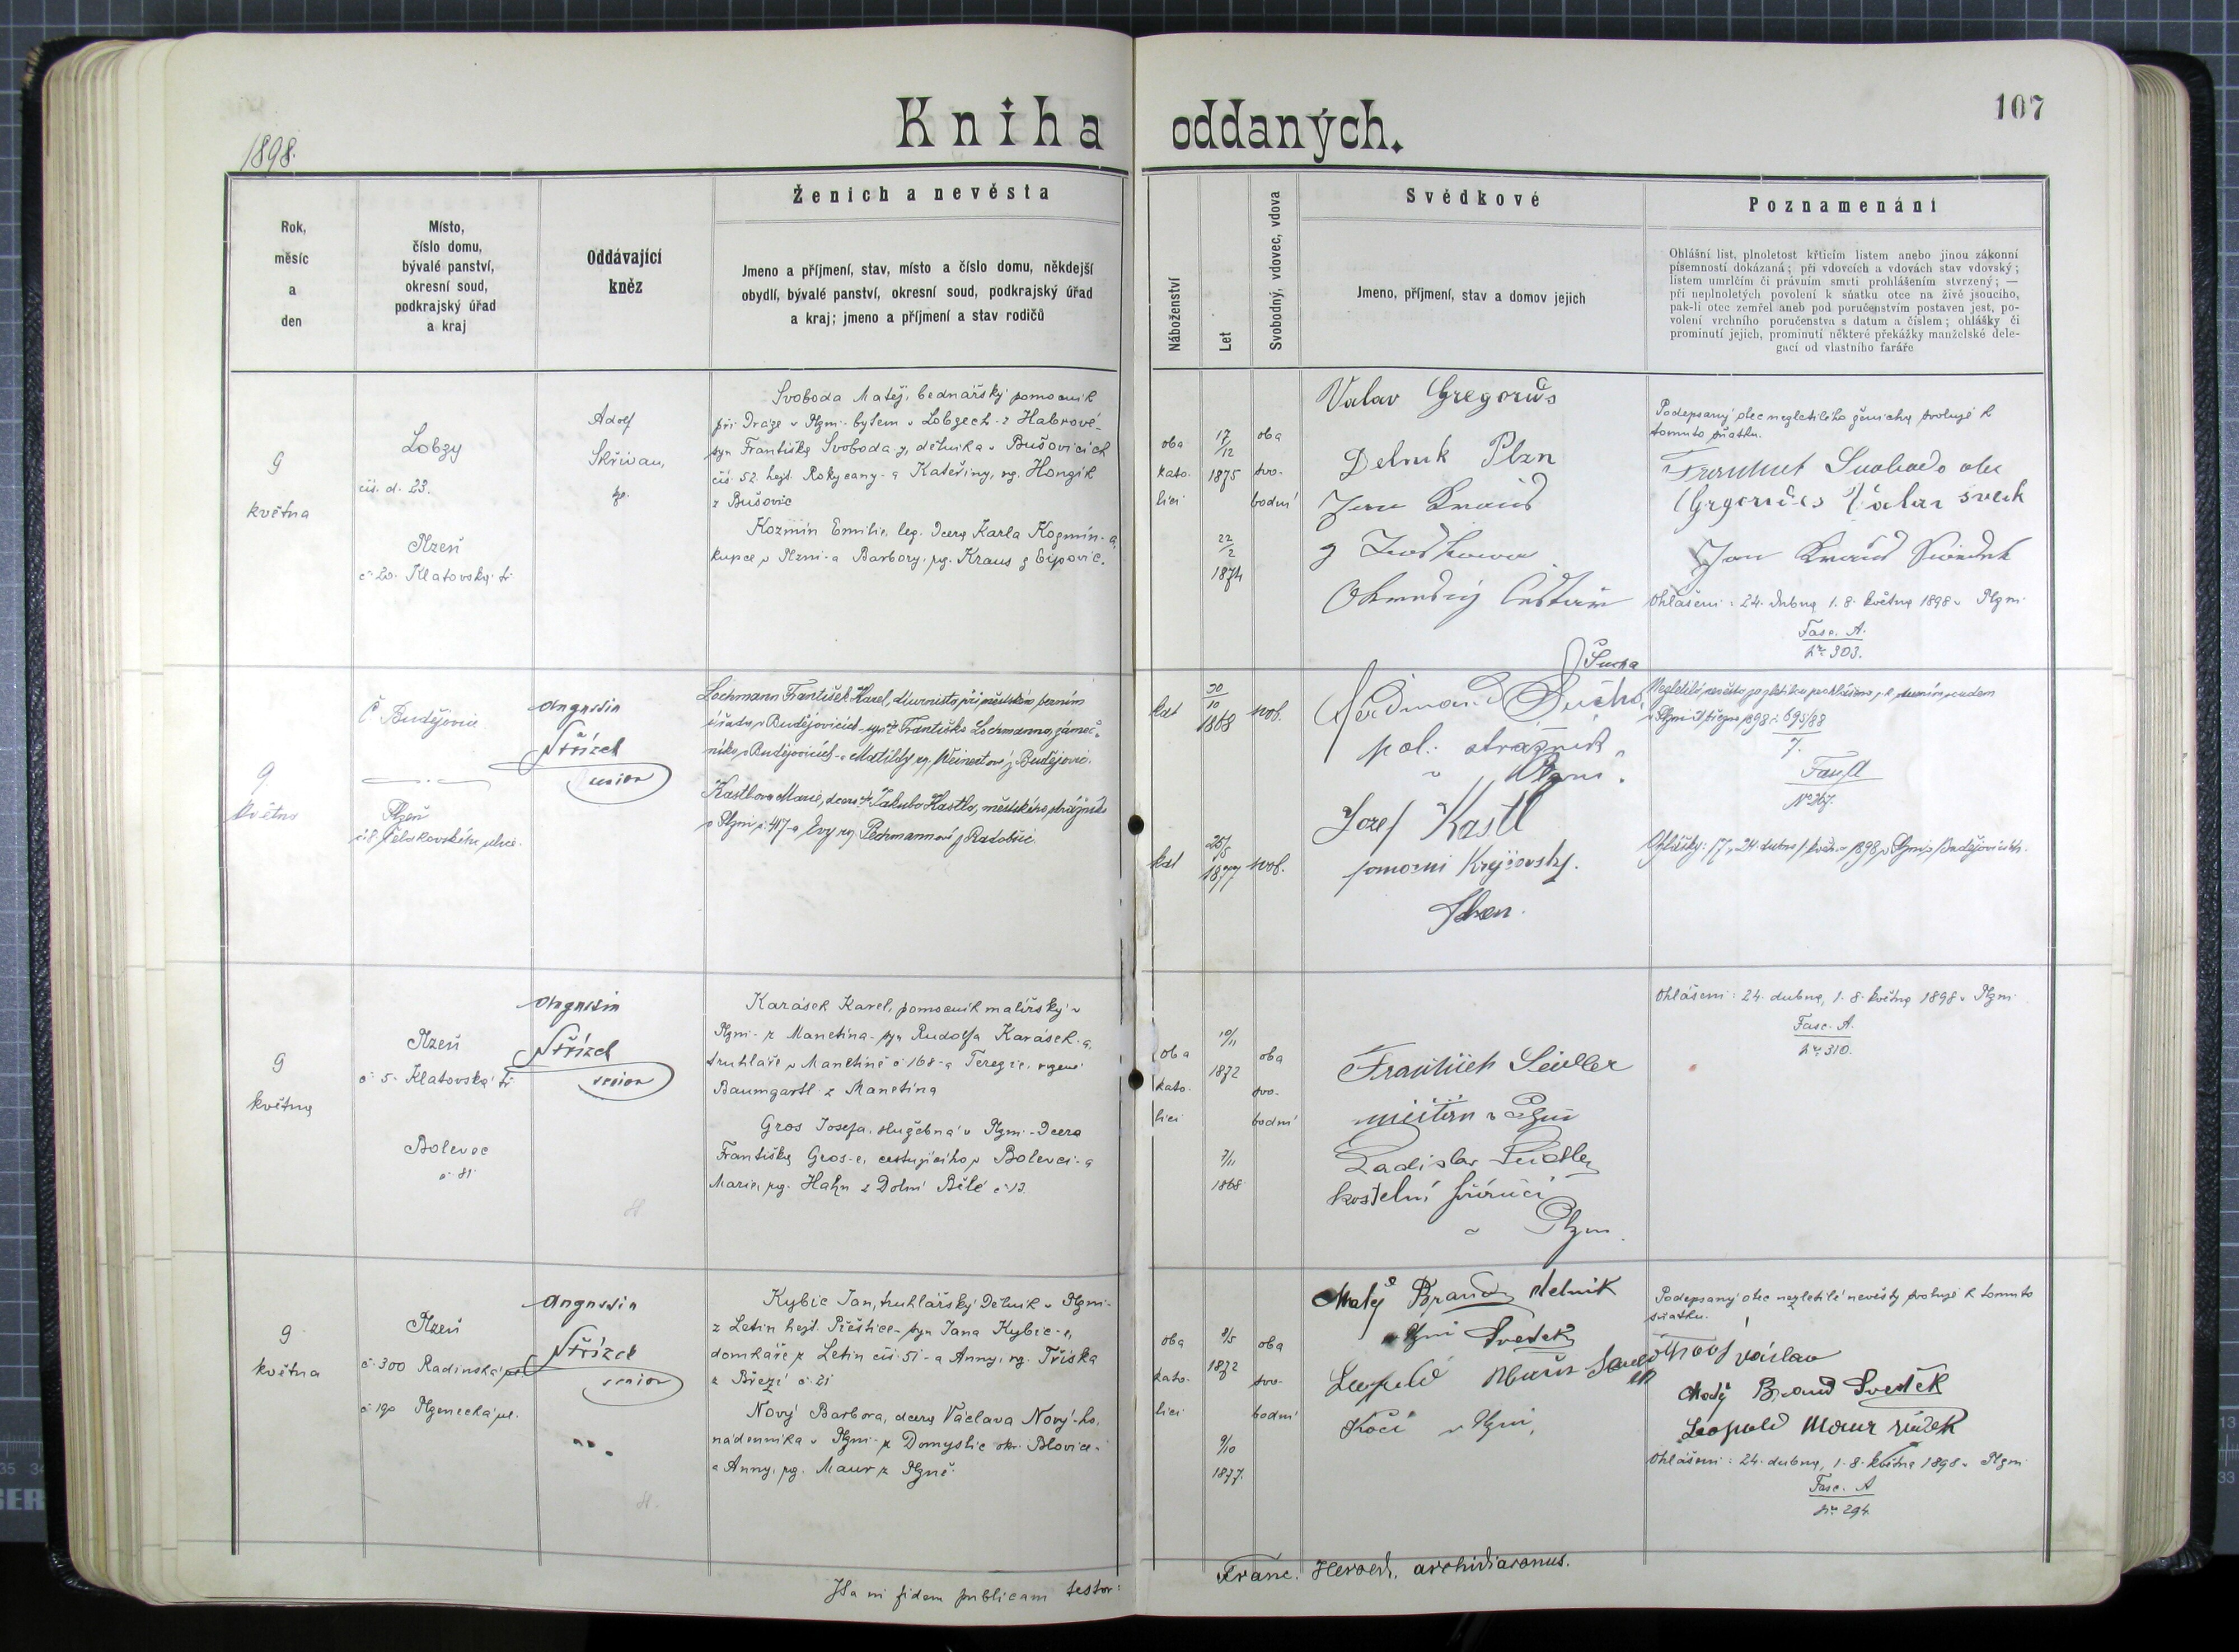 Kniha oddaných.
107
1898.
Rok,
měsíc
a
den
Místo,
číslo domu,
bývalé panství,
okresní soud,
podkrajský úřad
a kraj
Oddávající
kněz
Ženich a nevěsta
Jmeno a příjmení, stav, místo a číslo domu, někdejší
obydlí, bývalé panství, okresní soud, podkrajský úřad
a kraj; jmeno a příjmení a stav rodičů
Náboženství
Let
Svobodný, vdovec, vdova
Svědkové
Jmeno, příjmení, stav a domov jejich
Poznamenání
Ohlášní list, plnoletost křticím listem anebo jinou zákonní
písemností dokázaná; při vdovcích a vdovách stav vdovský;
listem umrlčím či právním smrti prohlášením stvrzený; —
při neplnoletých povolení k sňatku otce na živě jsoucího,
pak-li otec zemřel aneb pod poručenstvím postaven jest, po-
volení vrchního poručenstva s datum a číslem; ohlášky či
prominutí jejich, prominutí některé překážky manželské dele-
gací od vlastního faráře
9
května
Lobzy
čís. d. 23.
Plzeň
č. 20. Klatovská tř.
Adolf
Skřivan,
Svoboda Matěj, bednářský pomocník
při Dráze v Plzni - bytem v Lobzech - z Habrové -
syn Františka Svoboda-y, dělníka v Bušovicích
čís. 52. hejt. Rokycany - a Kateřiny, roz. Hongík
z Bušovic
Kozmín Emilie, leg. dcera Karla Kozmín-a,
kupce v Plzni - a Barbory, roz. Kraus z Ejpovic.
oba
kato-
líci
17/12
1875
22/2
1874
oba
svo-
bodní
Valav Gregoriůs
Delnik Plzn
Jan Kraus
Podepsaný otec nezletilého ženicha svoluje k
tomuto sňatku.
Frantisek Svoboda otec
Jan Kraus
Ohlášeni: 24. dubna, 1. 8. května 1898 v Plzni
Fasc. A.
Nro 303.
9
května
Č. Budějovice
Plzeň
č. 8 Čelakovského ulice.
Augustin
Střízek
senior
Lochmann František Karel, diurnista při městském berním
úřadu v Budějovicích - syn † Františka Lochmanna, zámeč-
níka v Budějovicích - a Matildy roz. z Budějovic.
Kastlova Marie, dcera † Jakuba Kastla, městského strážníka
v Plzni č. 417 - a Evy roz. Pechmannové z Radobčic.
kat
30/10
1868
svob.
kat
25/5
1877
svob.
Sucha
Ferdinand Sucha,
pol. strážník
v Plzni.
Jozef Kastl
pomocni Krejčovsky.
Plzen.
Fasc. A
No 267.
Ohlášky: 17, 24 dubna 1 květ. 1898 v Plzni, v Budějovicích.
9
května
Plzeň
č. 5. Klatovská tř.
Bolevec
č. 81
Augustin
Střízek
senior
Karásek Karel, pomocník malířský v
Plzni - z Manetína - syn Rudolfa Karásek-a,
truhláře v Manětíně č. 168 - a Terezie, rozené
Baumgartl z Manetína
Gros Josefa, služebná v Plzni - dcera
Františka Gros-e, cestujícího v Bolevci - a
Marie, roz. Hahn z Dolní Bělé č. 13.
oba
kato-
líci
10/11
1872
7/11
1868
oba
svo-
bodní
František Seidler
v Plzni
Ladislav Seidler
kostelní
v Plzni.
Ohlášeni: 24. dubna, 1. 8. května 1898 v Plzni
Fasc. A.
Nro 310.
9
května
Plzeň
č. 300 Radinská ul.
č. 190 Plzenecká ul.
Augustin
Střízek
senior
Kybic Jan, truhlářský dělník v Plzni -
z Letin hejt. Přeštice - syn Jana Kybic-e,
domkáře z Letin čís. 51 - a Anny, roz. Tříska
z Březí č. 21
Nový Barbora, dcera Václava Nový-ho,
nádenníka v Plzni - z Domyslic okr. Blovice -
a Anny, roz. Maur z Plzně.
oba
kato-
líci
9/5
1872
9/10
1877.
oba
svo-
bodní
Matěj Brand delnik
v Plzni Svedek
Leopold Maur
Kočí v Plzni,
Podepsaný otec nezletilé nevěsty svoluje k tomuto
sňatku.
Nový Václav
Matěj Brand Svedek
Leopold Maur svědek
Ohlášeni: 24. dubna, 1. 8. května 1898 v Plzni
Fasc. A
Nro 294.
Ita in fidem publicam testor:
Franc. Herold, archidiaconus.